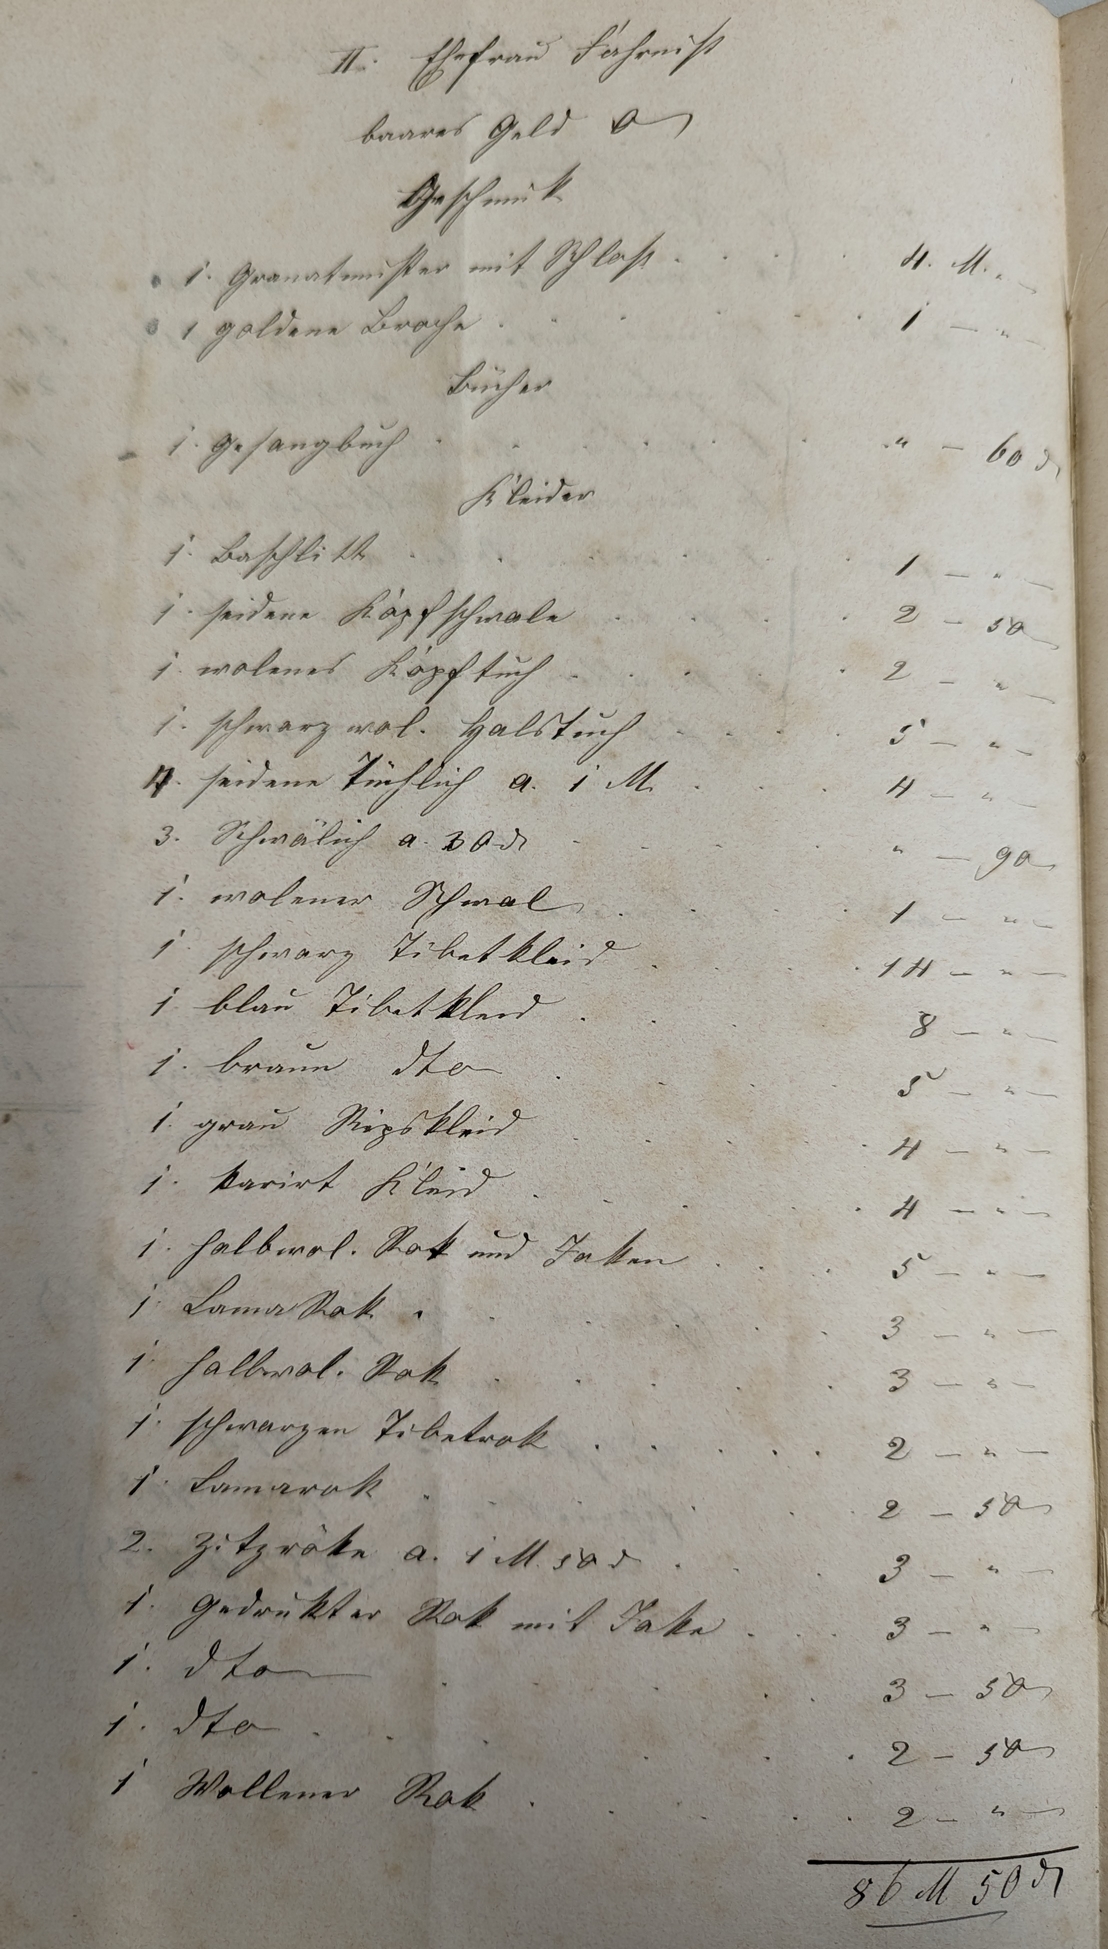 II. Ehefrau Fahrniß
baares Geld 0
Geschmuk
1. Granatmuster mit Schloß . . . . 4. M. "
1 goldene Broche . . . . 1 — "
Bücher
1. Gesangbuch . . . . " — 60 ₰
Kleider
1. Baschlikk . . . . 1 — " —
1. seidene Kopfschwale . . . . 2 — 50
1. wolenes Kopftuch . . . . 2 — " —
1. schwarz wol. Halstuch . . . . 5 — " —
4. seidene Tüchlich a. 1 M. . . . 4 — " —
3. Schwälich a. 30 ₰ . . . . " — 90
1. wolener Schwal . . . . 1 — " —
1. schwarz Tibetkleid . . . . 14 — " —
1. blau Tibetkleid . . . . 8 — " —
1. braun dto . . . . 5 — " —
1. grau Ripskleid . . . . 4 — " —
1. karirt Kleid . . . . 4 — " —
1. halbwol. Rok und Jakken . . . . 5 — " —
1 Lama Rok . . . . 3 — " —
1 halbwol. Rok . . . . 3 — " —
1. schwarzen Tibetrok . . . . 2 — " —
1. Lamarok . . . . 2 — 50
2. Zitzröke a. 1 M. 50 ₰ . . . . 3 — " —
1. Gedrukter Rok mit Jake . . . . 3 — " —
1. dto . . . . 3 — 50
1. dto . . . . 2 — 50
1 Wollener Rok . . . . 2 — " —
86 M 50 ₰